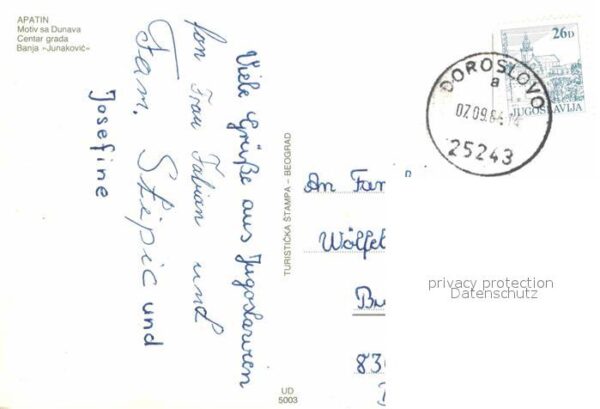 APATIN
Motiv sa Dunava
Centar grada
Banja »Junaković«
Viele Grüße aus Jugoslawien
fon Frau Fabian und
Fam. Stepic und
Josefine
TURISTIČKA ŠTAMPA – BEOGRAD
UD
5003
26D
JUGOSLAVIJA
DOROSLOVO
a
07.09.
25243
An Fam
Wölfel
830
privacy protection
Datenschutz